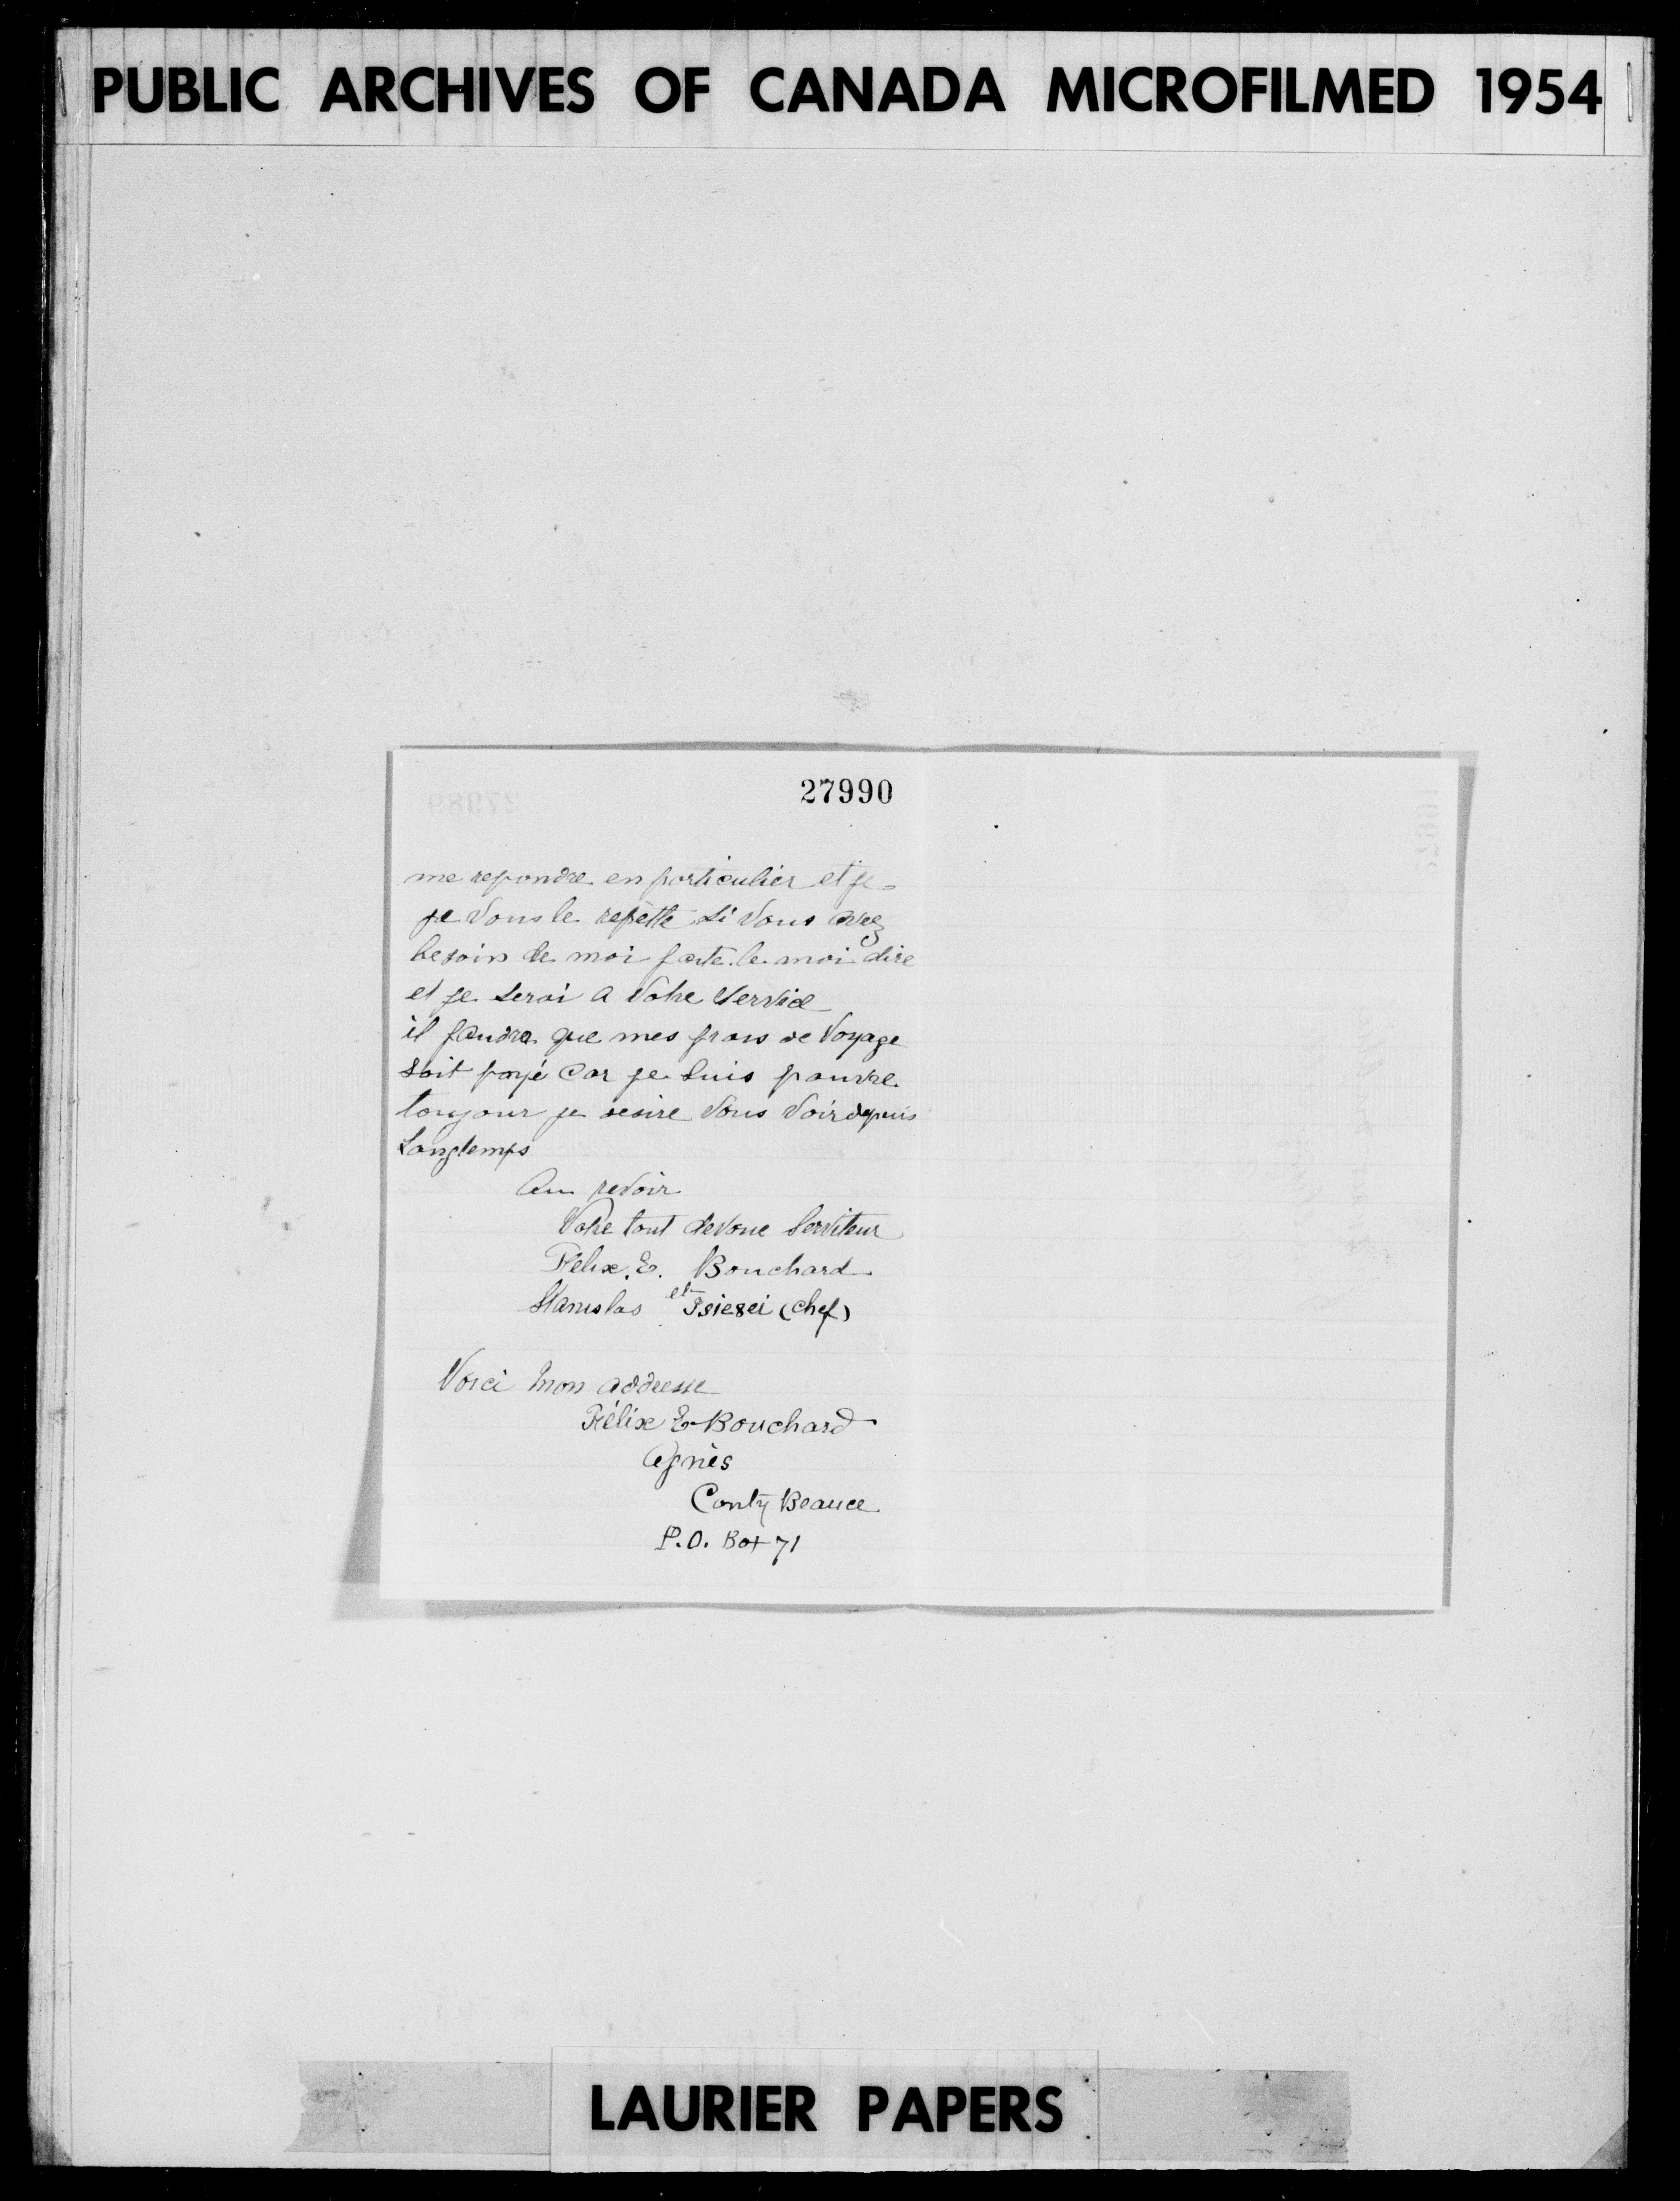 PUBLIC ARCHIVES OF CANADA MICROFILMED 1954
27990
me repondre en particulier et je
je Vous le repètte Si Vous avez
besoin de moi faite le moi dire
et je serai a Votre Service
il faudra que mes frais de Voyage
soit payé Car je suis pauvre
toujour je desire Vous Voir depuis
Longtemps
Au revoir
Votre tout devoue Serviteur
Félix. E. Bouchard
Stanislas et (chef)
Voici Mon addresse
Félix E Bouchard
Agnès
Conty Beauce
P.O. Box 71
LAURIER PAPERS